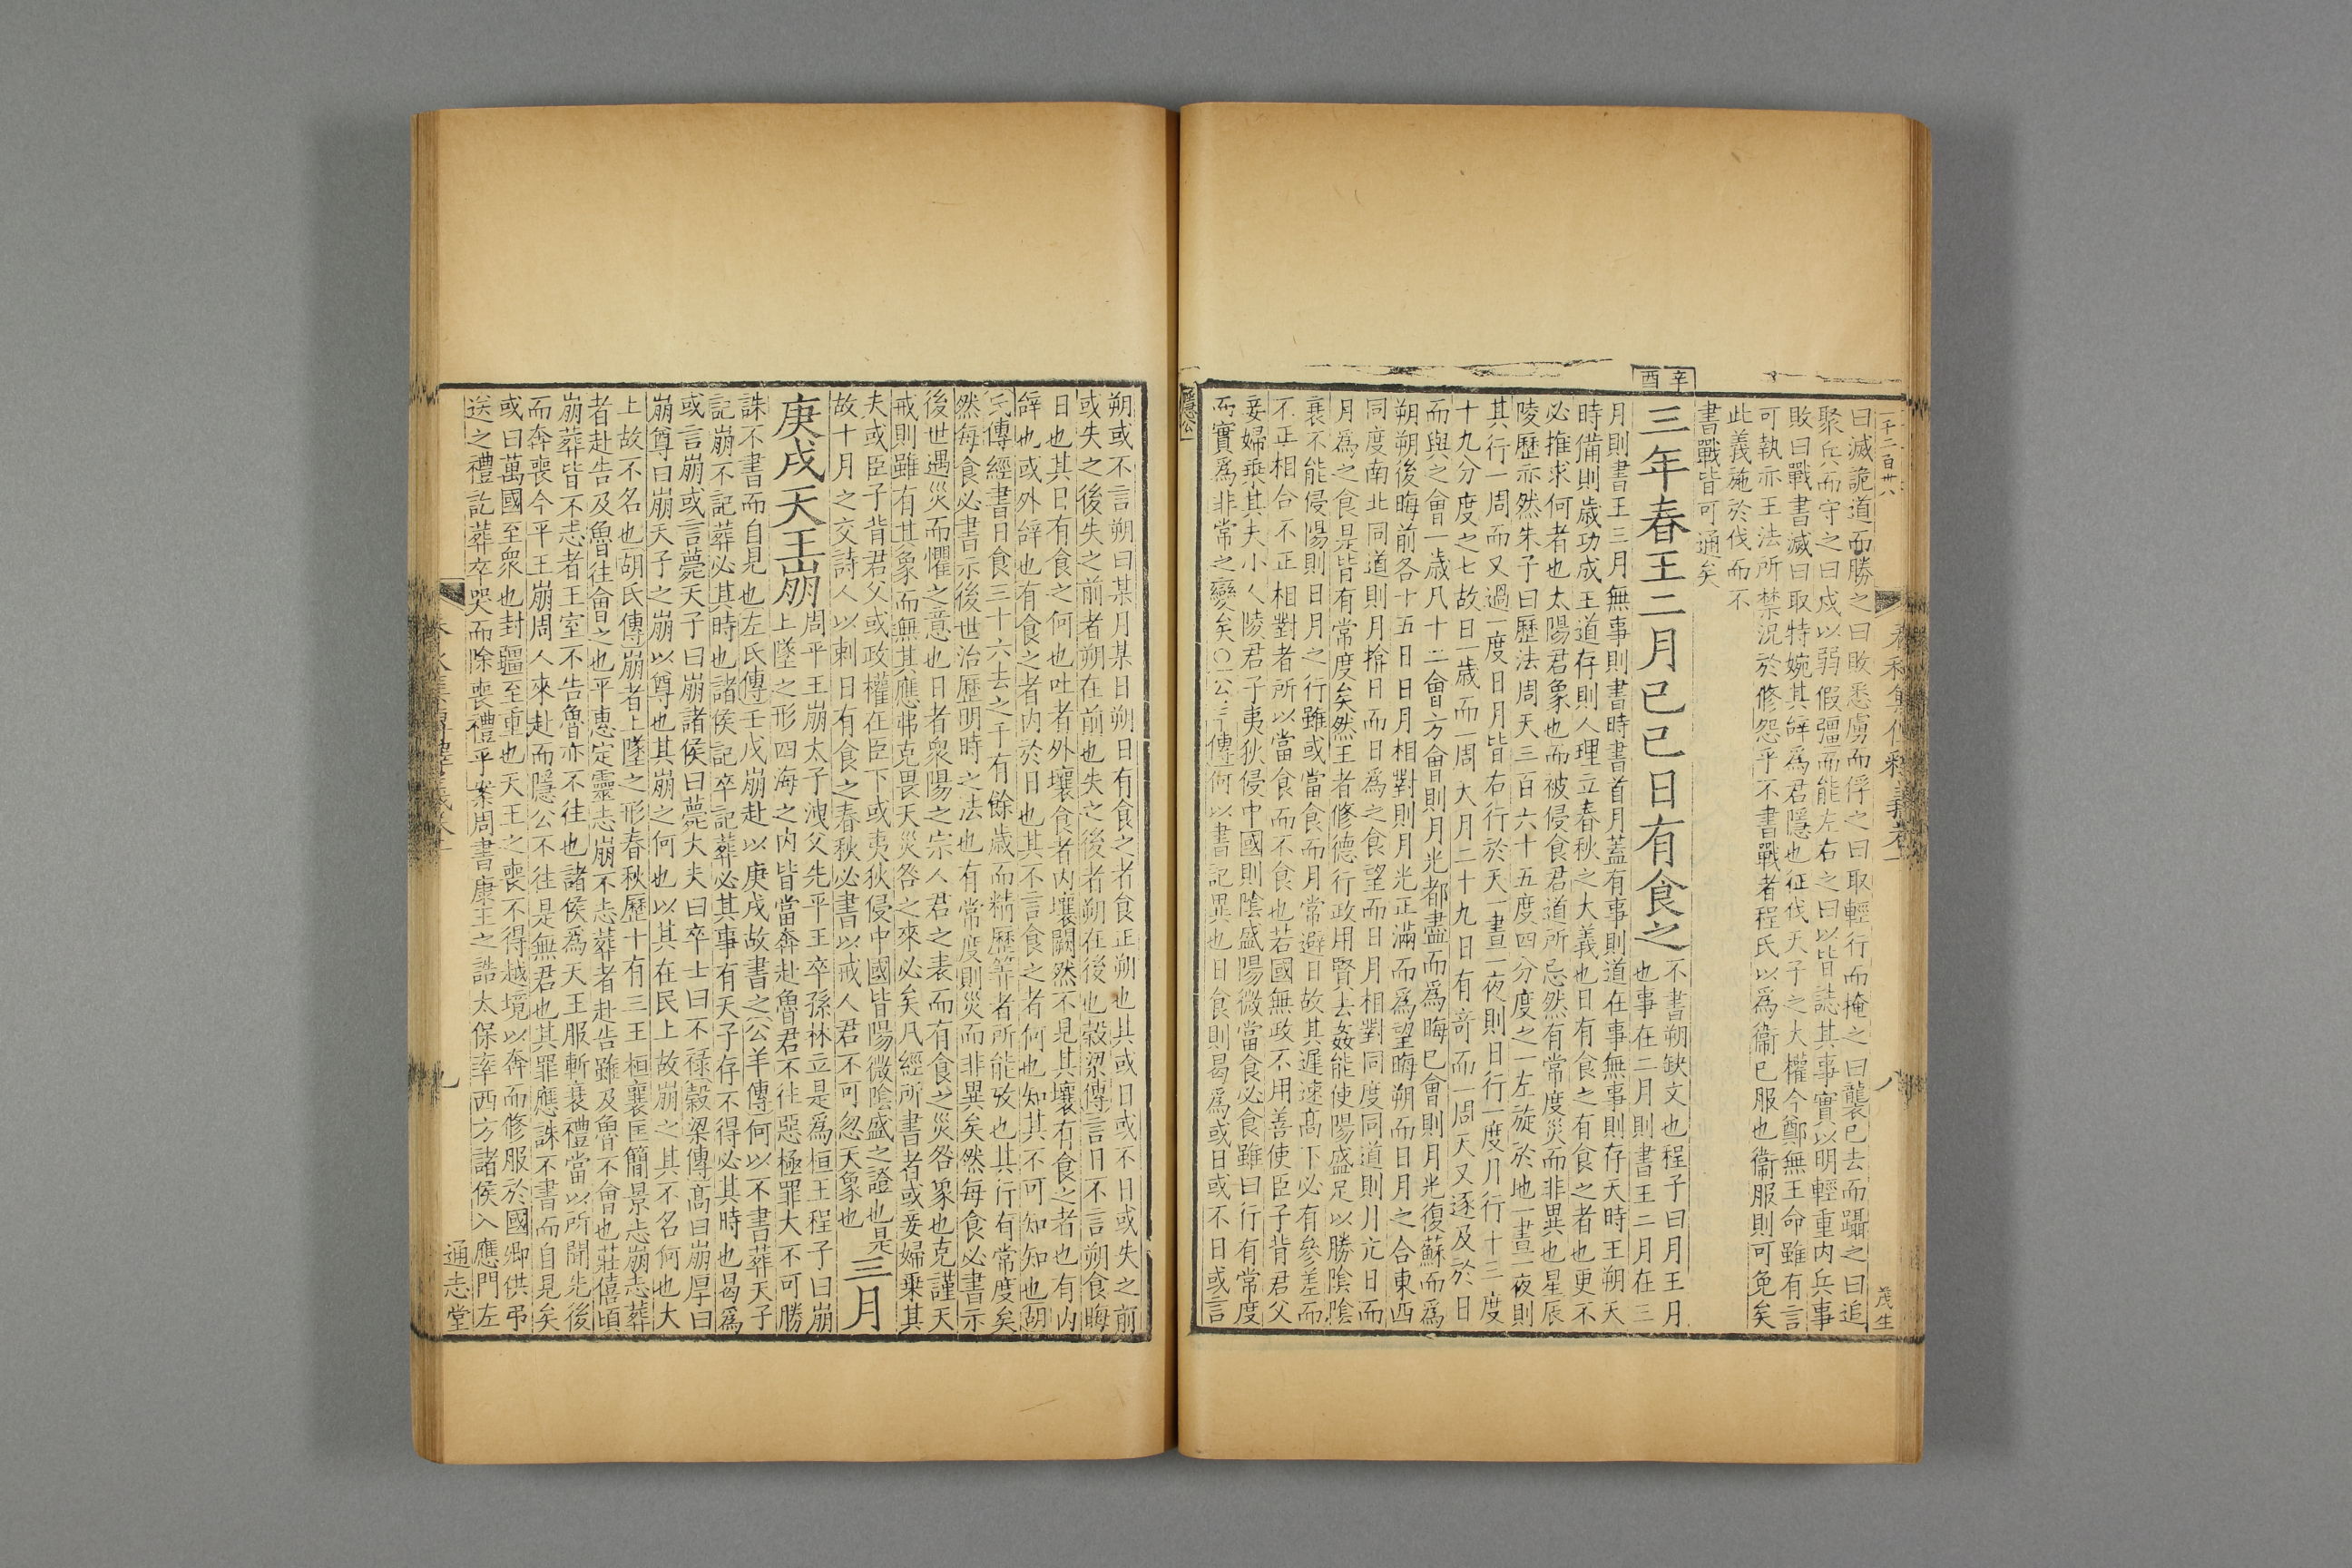 一千二百卅八
春秋集傳釋義卷一
八
茂生
曰滅詭道而勝之曰敗悉虜而俘之曰取輕行而掩之曰襲已去而躡之曰追
聚兵而守之曰戍以弱假彊而能左右之曰以皆誌其事實以明輕重内兵事
敗曰戰書滅曰取特婉其辭爲君隱也征伐天子之大權今鄭無王命雖有言
可執亦王法所禁況於修怨乎不書戰者程氏以爲衞已服也衞服則可免矣
此義施於伐而不
書戰皆可通矣
辛酉
三年春王二月己巳日有食之
不書朔缺文也程子曰月王月
也事在二月則書王二月在三
月則書王三月無事則書時書首月蓋有事則道在事無事則存天時王朔天
時備則歳功成王道存則人理立春秋之大義也日有食之有食之者也更不
必推求何者也太陽君象也而被侵食君道所忌然有常度災而非異也星辰
陵歷亦然朱子曰歷法周天三百六十五度四分度之一左旋於地一晝一夜則
其行一周而又過一度日月皆右行於天一晝一夜則日行一度月行十三度
十九分度之七故日一歳而一周天月二十九日有奇而一周天又逐及於日
而與之會一歳凡十二會方會則月光都盡而爲晦已會則月光復蘇而爲
朔朔後晦前各十五日日月相對則月光正滿而爲望晦朔而日月之合東西
同度南北同道則月揜日而日爲之食望而日月相對同度同道則月亢日而
月爲之食是皆有常度矣然王者修德行政用賢去姦能使陽盛足以勝陰陰
衰不能侵陽則日月之行雖或當食而月常避日故其遲速高下必有參差而
不正相合不正相對者所以當食而不食也若國無政不用善使臣子背君父
妾婦乗其夫小人陵君子夷狄侵中國則陰盛陽微當食必食雖曰行有常度
而實爲非常之變矣○公羊傳何以書記異也日食則曷爲或日或不日或言
隱公
朔或不言朔曰某月某日朔日有食之者食正朔也其或日或不日或失之前
或失之後失之前者朔在前也失之後者朔在後也穀梁傳言日不言朔食晦
日也其日有食之何也吐者外壤食者内壤闕然不見其壤有食之者也有内
辭也或外辭也有食之者内於日也其不言食之者何也知其不可知知也胡
氏傳經書日食三十六去之千有餘歳而精歷筭者所能攷也其行有常度矣
然每食必書示後世治歷明時之法也有常度則災而非異矣然每食必書示
後世遇災而懼之意也日者衆陽之宗人君之表而有食之災咎象也克謹天
戒則雖有其象而無其應弗克畏天災咎之來必矣凡經所書者或妾婦乗其
夫或臣子背君父或政權在臣下或夷狄侵中國皆陽微陰盛之證也是
故十月之交詩人以刺日有食之春秋必書以戒人君不可忽天象也
三月
庚戌天王崩
周平王崩太子洩父先平王卒孫林立是爲桓王程子曰崩
上墜之形四海之内皆當奔赴魯君不往惡極罪大不可勝
誅不書而自見也左氏傳壬戌崩赴以庚戌故書之公羊傳何以不書葬天子
記崩不記葬必其時也諸侯記卒記葬必其事有天子存不得必其時也曷爲
或言崩或言薨天子曰崩諸侯曰薨大夫曰卒士曰不禄穀梁傳髙曰崩厚曰
崩尊曰崩天子之崩以尊也其崩之何也以其在民上故崩之其不名何也大
上故不名也胡氏傳崩者上墜之形春秋歷十有三王桓襄匡簡景志崩志葬
者赴告及魯往會之也平惠定靈志崩不志葬者赴告雖及魯不會也莊僖頃
崩葬皆不志者王室不告魯亦不往也諸侯為天王服斬衰禮當以所聞先後
而奔喪今平王崩周人來赴而隱公不往是無君也其罪應誅不書而自見矣
或曰萬國至衆也封疆至重也天王之喪不得越境以奔而修服於國卿供弔
送之禮訖葬卒哭而除喪禮乎案周書康王之誥太保率西方諸侯入應門左
九
通志堂